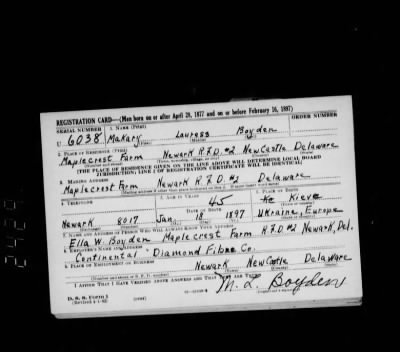 REGISTRATION CARD—(Men born on or after April 28, 1877 and on or before February 16, 1897)
SERIAL NUMBER 1. NAME (Print) ORDER NUMBER
U 6038 Makary Lauress Boyden
2. PLACE OF RESIDENCE (Print)
Maplecrest Farm Newark R.F.D. #2 NewCastle Delaware
[THE PLACE OF RESIDENCE GIVEN ON THE LINE ABOVE WILL DETERMINE LOCAL BOARD
JURISDICTION; LINE 2 OF REGISTRATION CERTIFICATE WILL BE IDENTICAL]
3. MAILING ADDRESS
Maplecrest Farm Newark R.F.D. #2 Delaware
4. TELEPHONE 5. AGE IN YEARS 6. PLACE OF BIRTH
45 Kieve
DATE OF BIRTH
Newark 8017 Jan. 18 1897 Ukraine, Europe
7. NAME AND ADDRESS OF PERSON WHO WILL ALWAYS KNOW YOUR ADDRESS
Ella W. Boyden Maplecrest Farm R.F.D #2 Newark, Del.
8. EMPLOYER'S NAME AND ADDRESS
Continental - Diamond Fibre Co.
9. PLACE OF EMPLOYMENT OR BUSINESS
Newark NewCastle Delaware
I AFFIRM THAT I HAVE VERIFIED ABOVE ANSWERS AND THAT THEY ARE TRUE.
D. S. S. Form 1
(Revised 4-1-42)
M. L. Boyden
2489